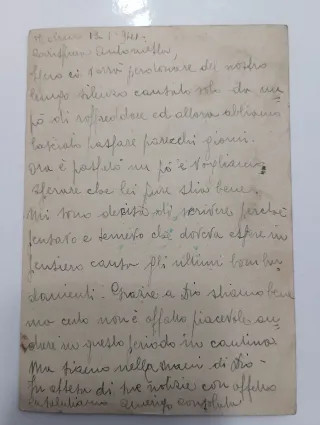 13-1-941-
Carissima Antonietta,
Spero ci vorrà perdonare del nostro
lungo silenzio causato solo da un
pò di raffreddore ed allora abbiamo
lasciato passare parecchi giorni.
Ora è passato un pò e vogliamo
sperare che lei pure stia bene.
Mi sono decisa di scrivere perchè
pensavo e temevo che doveva essere in
pensiero causa gli ultimi bombar
damenti. Grazie a Dio stiamo bene
ma certo non è affatto piacevole an-
dare in questo periodo in cantina.
Ma siamo nelle mani di Dio-
In attesa di sue notizie con affetto
la salutiamo